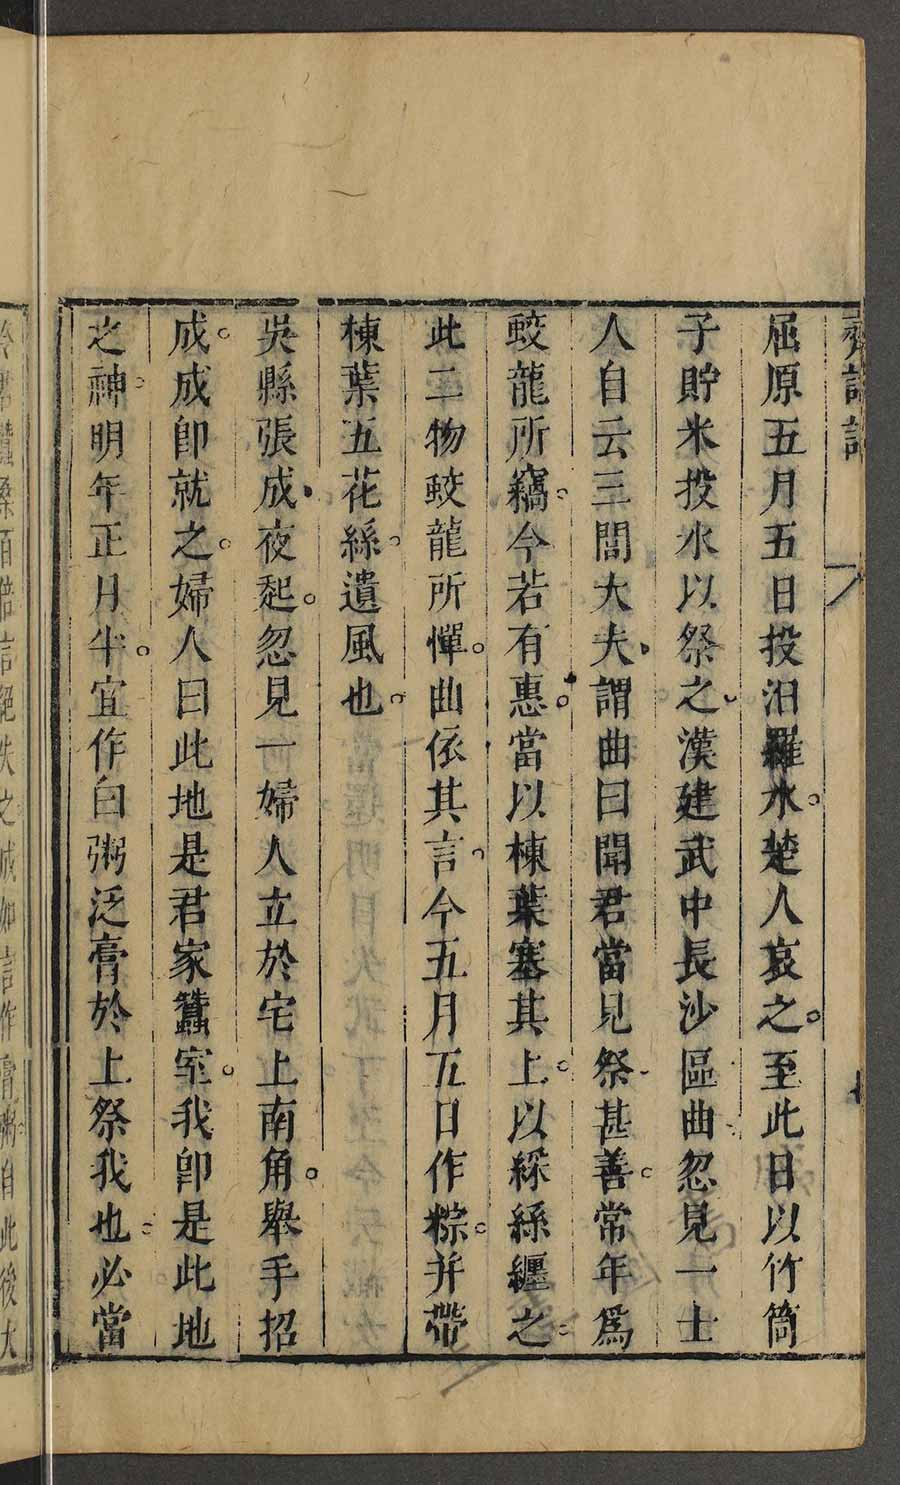 屈原五月五日投汨羅水。楚人哀之。至此日以竹筒
子貯米投水以祭之、漢建武中長沙區曲、忽見一士
人自云三閭大夫、謂曲曰聞君當見祭、甚善。常年爲
蛟龍所竊。今若有惠。當以楝葉塞其上。以綵絲纏之。
此二物蛟龍所憚。曲依其言。今五月五日作粽。并帶
楝葉五花絲。遺風也。
吳縣張成夜起。忽見一婦人立於宅上南角。舉手招
成。成卽就之。婦人曰此地是君家蠶室。我卽是此地
之神。明年正月半。宜作白粥泛膏於上祭我也。必當